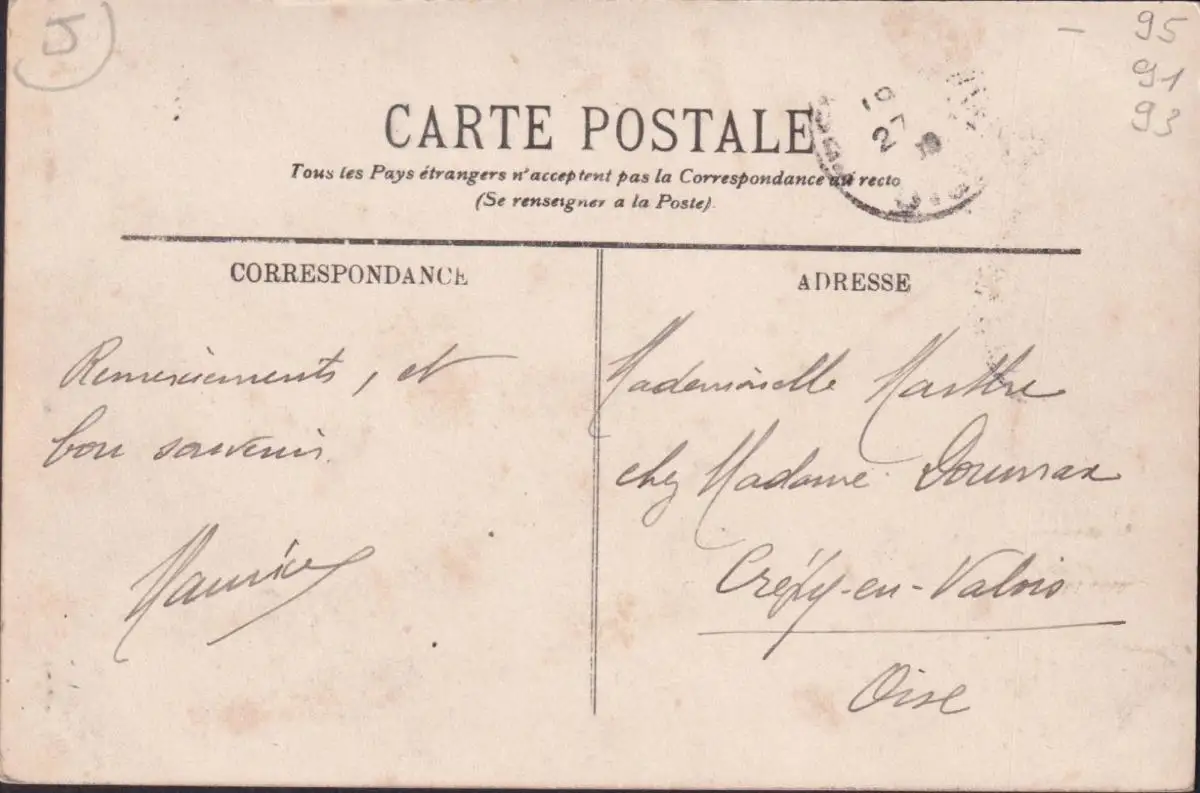 J
95
91
93
CARTE POSTALE
Tous les Pays étrangers n'acceptent pas la Correspondance au recto
(Se renseigner a la Poste)
27
CORRESPONDANCE
Remerciements, et
bon souvenir.
Maurice
ADRESSE
Mademoiselle Marthe
chez Madame
Crépy-en-Valois
Oise